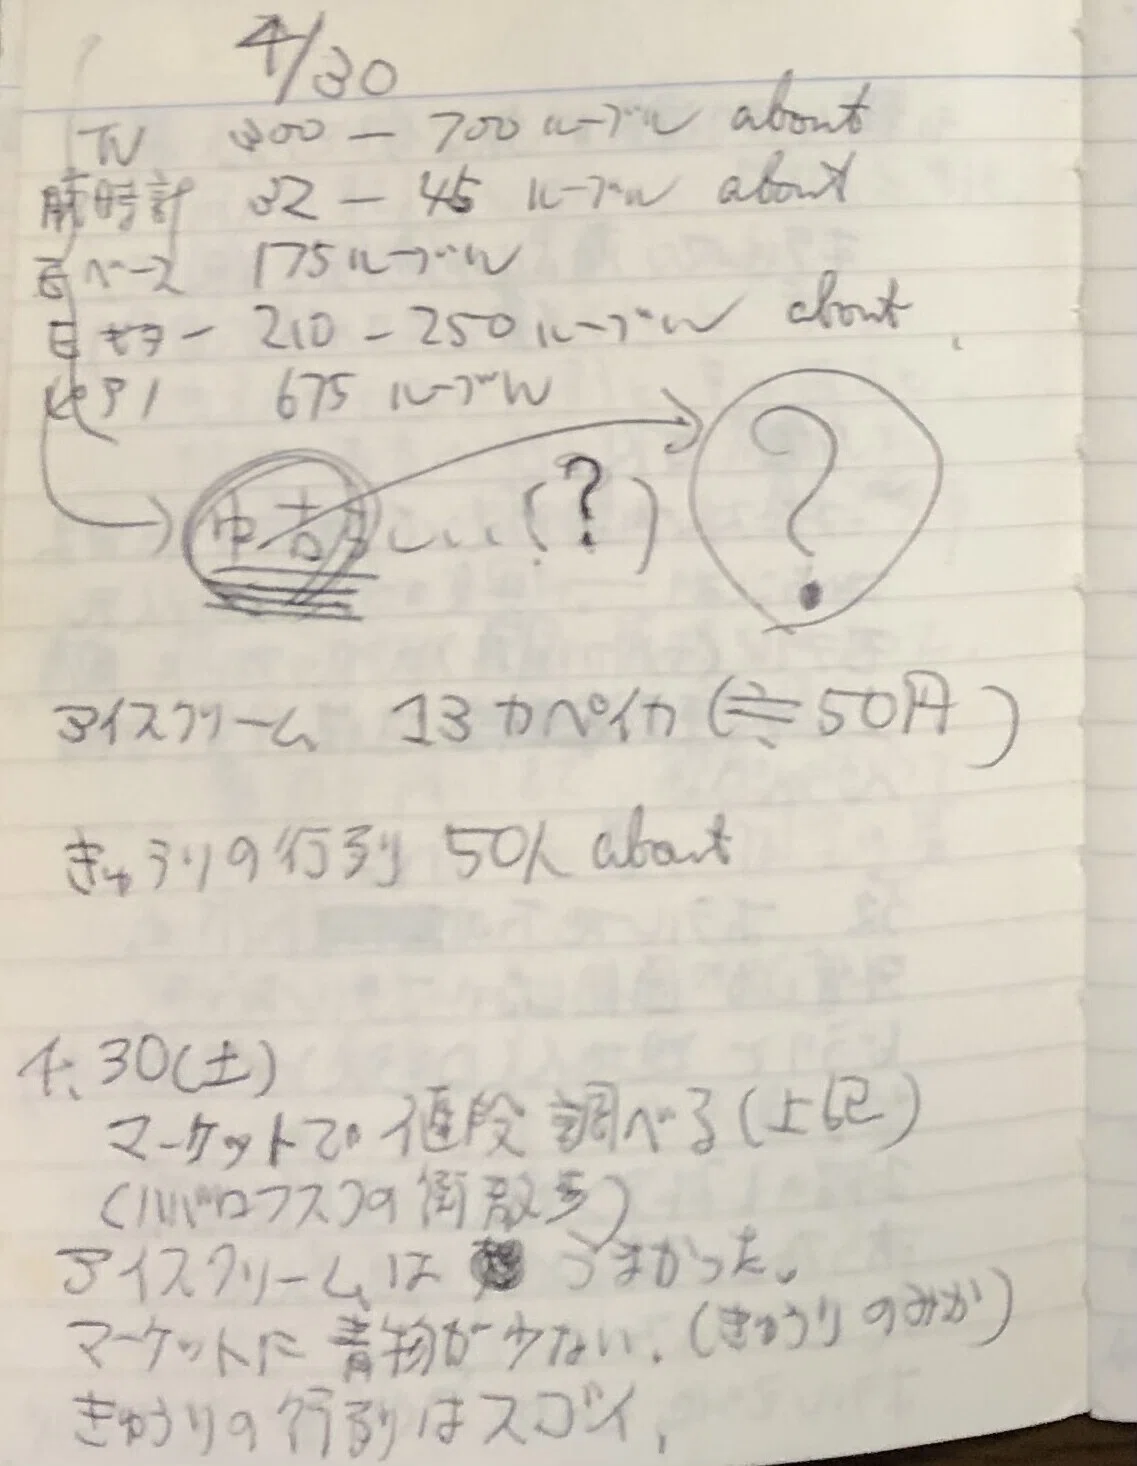 4/30
TV 300 — 700 ルーブル about
腕時計 32 — 45 ルーブル about
ベース 175 ルーブル
ギター 210 — 250 ルーブル about
ピアノ 675 ルーブル
中古らしい、(?) ?
アイスクリーム 13 カペイカ (≒50円)
きゅうりの行列 50人 about
4.30(土)
マーケットで値段調べる(上記)
(ハバロフスクの街散歩)
アイスクリームは うまかった。
マーケットに青物が少ない.(きゅうりのみか)
きゅうりの行列はスゴイ.